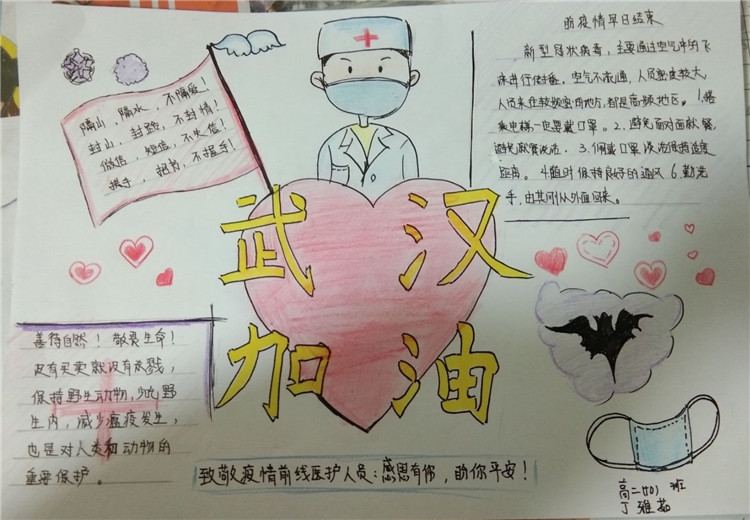 隔山，隔水，不隔爱！
封山，封路，不封情！
微信，短信，不失信！
携手，把书，不握手！
萌疫情早日结束
新型冠状病毒，主要通过空气中的飞
沫进行传播，空气不流通，人员密度较大，
人员来往较频密的地方，都是高频地区。1.搭
乘电梯一定要戴口罩。2.避免面对面就餐，
避免就餐说话．3.佩戴口罩谈话保持适度
距离。4.随时保持良好的通风 6.勤洗
手，尤其刚从外面回来。
武汉
加油
善待自然！敬畏生命！
没有买卖就没有杀戮，
保持野生动物，少吃野
生肉，减少瘟疫发生，
也是对人类和动物的
重要保护。
致敬疫情前线医护人员：感恩有你，助你平安！
高二 班
丁雅茹